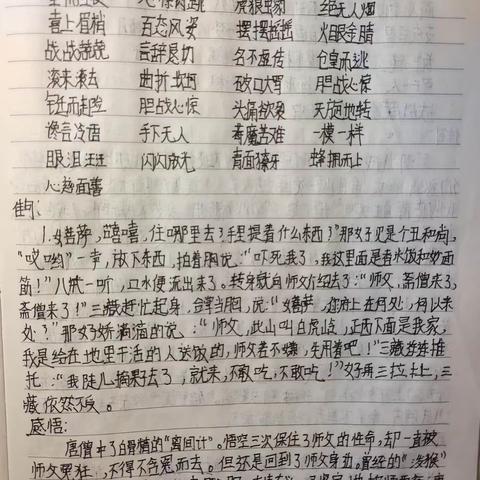 喜上眉梢 百态风姿 摆摆摇摇 火眼金睛
战战兢兢 言辞恳切 名不虚传 仓皇而逃
滚来滚去 曲折坎坷 破口大骂 胆战心惊
铤而走险 胆战心惊 头痛欲裂 天旋地转
谗言冷语 手下无人 毒魔苦难 一模一样
眼泪汪汪 闪闪放光 青面獠牙 蜂拥而上
心慈面善
佳句:
1.女菩萨,嘻嘻,住哪里去?手里提着什么东西?”那女子见是个丑和尚,
“哎哟”一声,放下东西,拍着胸说:“吓死我了,我这里面是香水饭和炒面
筋!”八戒一听,口水便流出来了。转身就向师父介绍去了:“师父,斋僧来了,
斋僧来了!”三藏赶忙起身,合掌当胸,说:“女菩萨,你府上在何处,何以来
处?”那女子娇滴滴的说:“师父,此山叫白虎岭,正西下面是我家,
我是给在地里干活的人送饭的,师父若不嫌,先用着吧!”三藏连连推
托:“我徒儿摘果去了,就来,不敢吃,不敢吃!”女子再三拉扯上,三
藏依然不吃。
感悟:
唐僧中了白骨精的“离间计”。悟空三次保住了师父的性命,却一直被
师父冤枉,不得不含冤而去。但还是回到了师父身边。曾经的“泼猴”